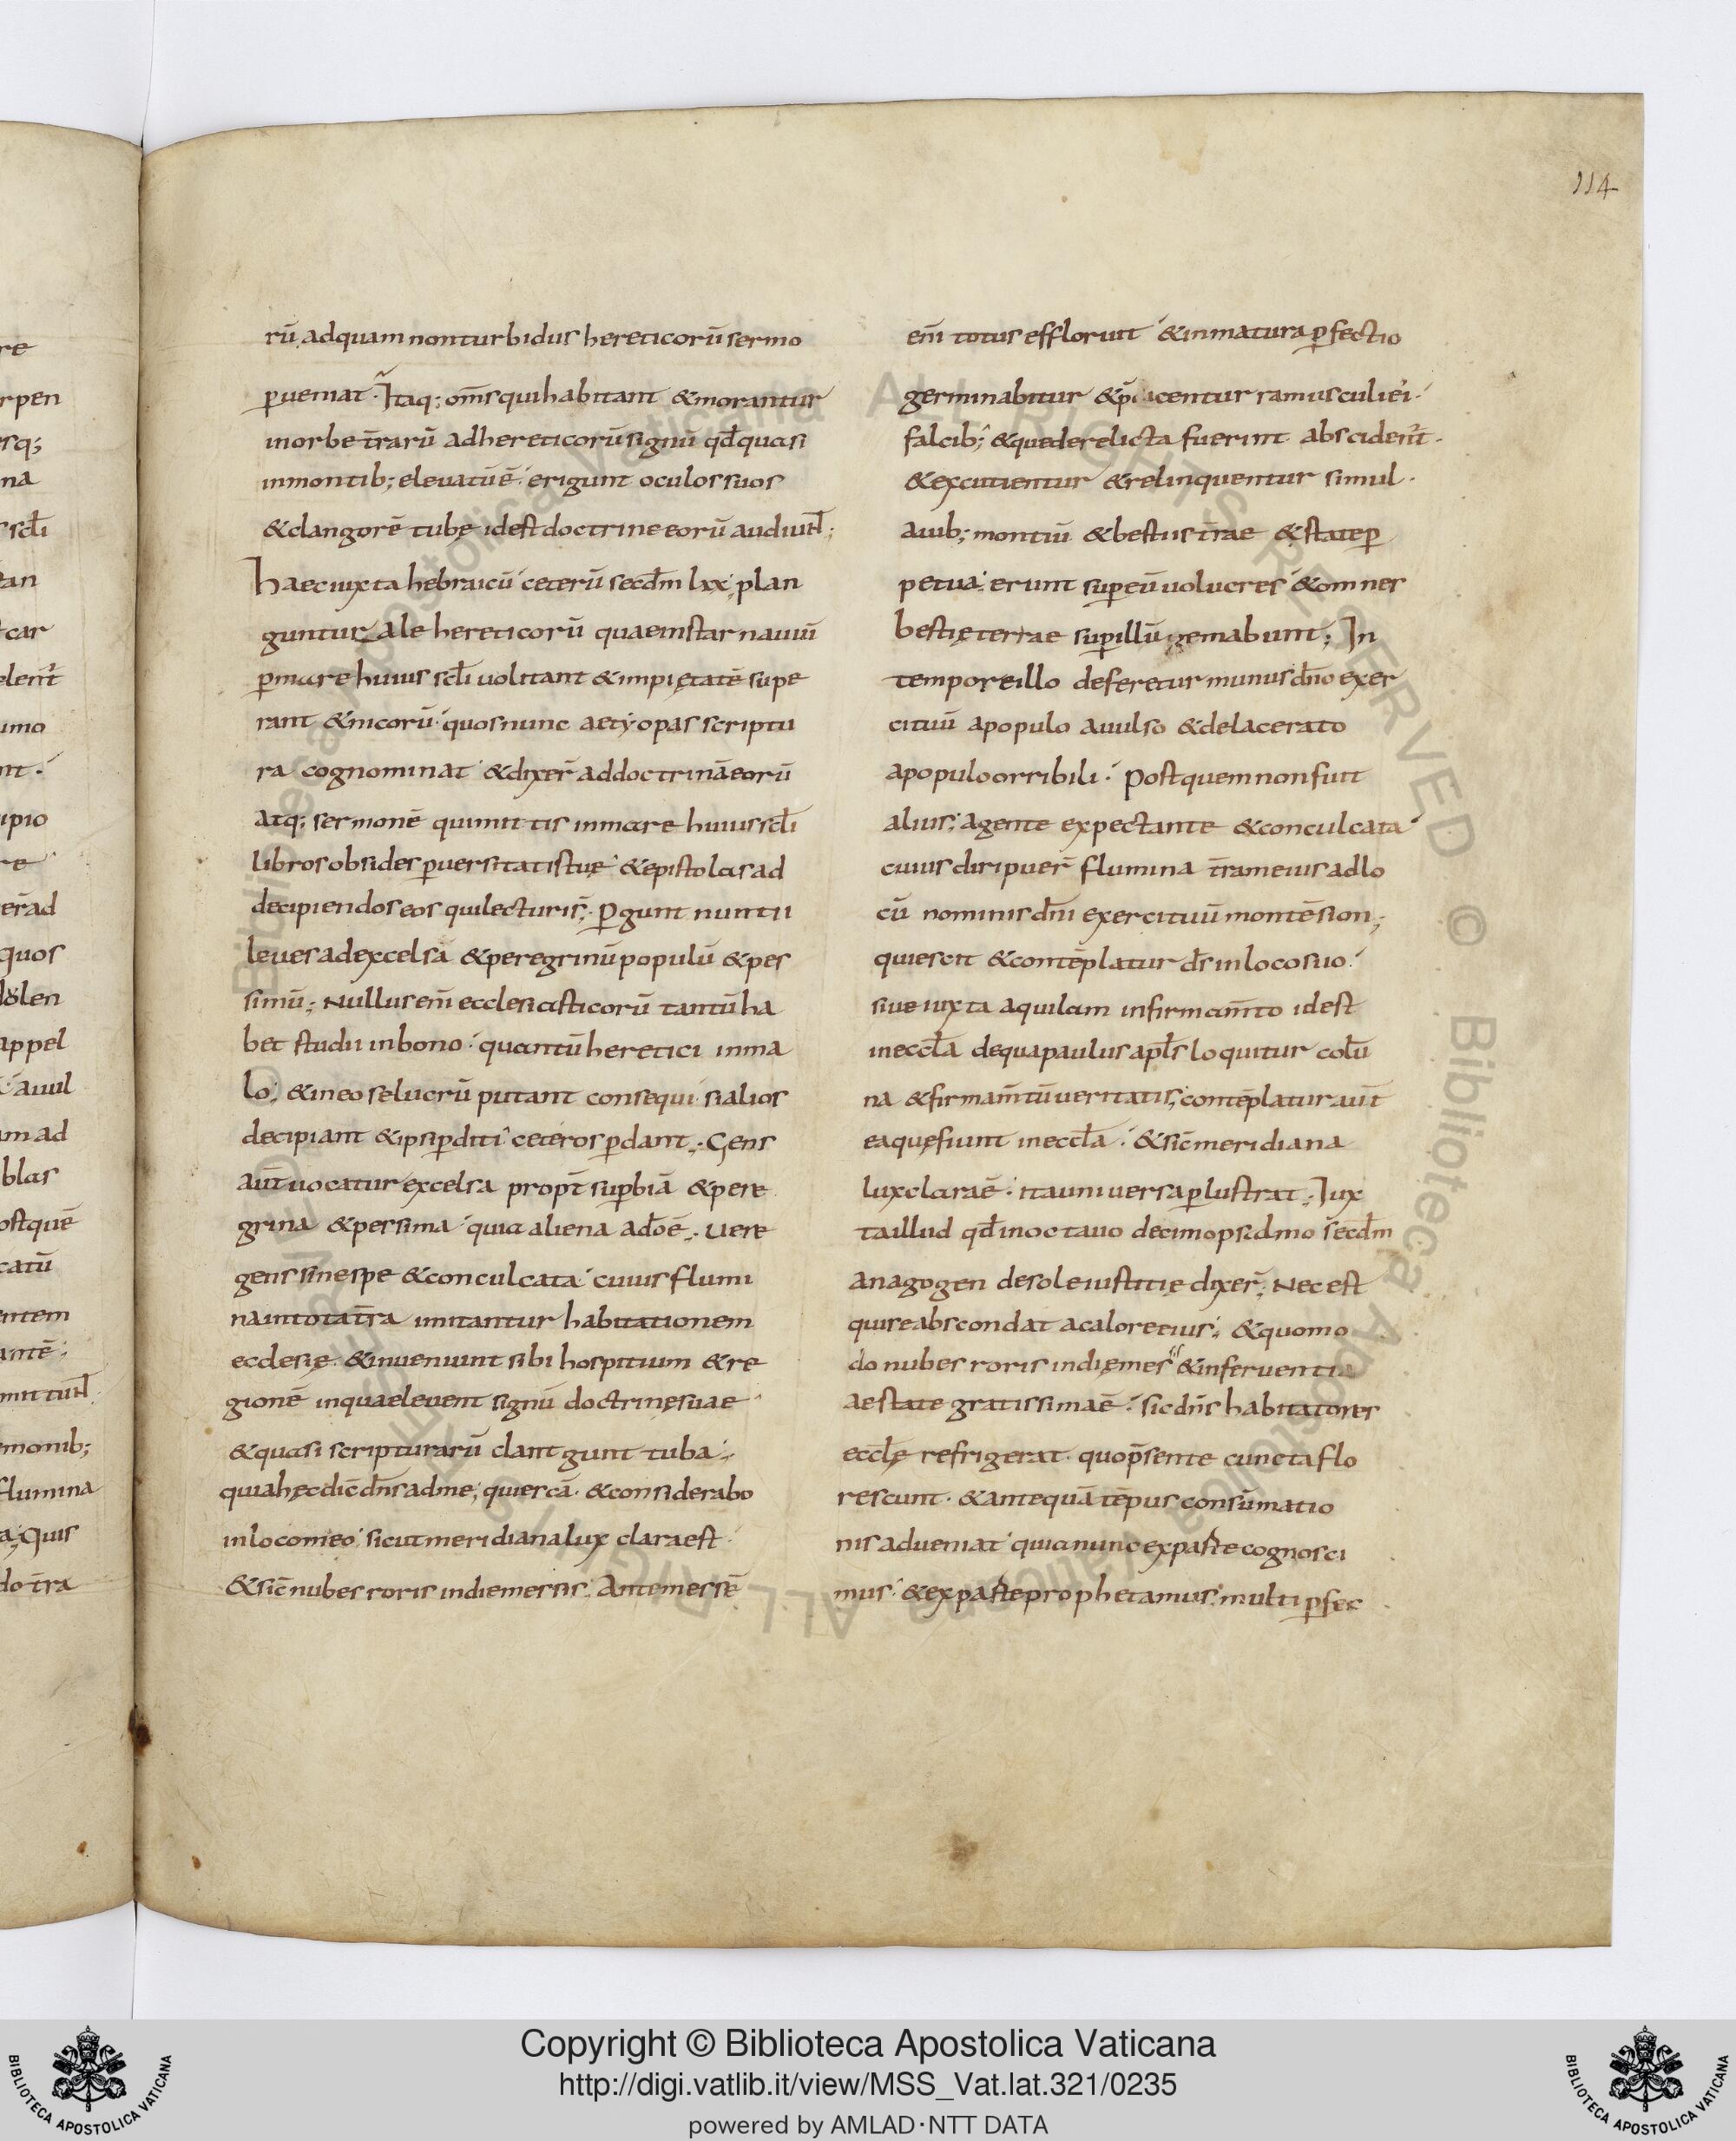 114
rū, adquam nonturbidus hereticorū sermo
ꝑueniat· Itaq; om̄s quihabitant &morantur
inorbetrarū adhereticorū signū qd̄quasi
inmontib; eleuatūē· erigunt oculos suos
&clangorē tubę idest doctrine eorū audiun̄t;
haec iuxta hebraicū· ceterū secd̄m lxx; plan
guntur ale hereticorū quaeinstar nauiū
ꝑmare huius scl̄i uolitant &impiętatē supe
rant &nicorū· quosnunc aetyopas scriptu
ra cognominat &dixer̄ addoctrināeorū
atq; sermonē quimittis inmare huius scl̄i
libros obsides ꝑuersitatistuę· &epistolas ad
decipiendos eos quilecturis̄;· Ꝑgunt nuntii
leues adexcelsā &peregrinū populū &pes
simū; Nullus em̄ ecclesiasticorū tantū ha
bet studii inbono· quantū heretici inma
lo; &ineo selucrū putant consequi· sialios
decipiant &ipsiꝑditi ceteros ꝑdant;· Gens
aūt uocatur excelsa propt̄ suꝑbiā &pere
grina &persima· quia aliena ad̄oē;· uere
gens sinespe &conculcata· cuius flumi
naintotatr̄a imitantur habitationem
ecclesię· &inueniunt sibi hospitium &re
gionē inquaeleuent signū doctrinęsuae·
&quasi scripturarū clantgunt tuba;·
quiahęcdic̄ dn̄s adme; quiescā· &considerabo
inlocomeo· sicutmeridianalux claraest·
&sic̄ nubes roris indiemessis· Antemessē
em̄ totus effloruit &inmatura ꝑfectio
germinabitur & centur ramusculiei·
falcib; &quederelicta fuerint· abscident̄·
&excutientur &relinquentur simul·
auib; montiū &bestiis tr̄ae &ęstateꝑ
petua· erunt suꝑeū uolucres &omnes
bestięterrae suꝑillū gemabunt; In
temporeillo deferetur munus dn̄o exer
cituū apopulo auulso &delacerato
apopuloorribili· Postquemnonfuit
alius; agente expectante &conculcata
cuius diripuer̄ flumina tr̄ameius adlo
cū nominis dn̄i exercituū montēsion;
quiescit &contēplatur ds̄ inlocosuo·
siue iuxta aquilam infirmam̄to idest
ineccl̄a dequapaulus apl̄s loquitur colū
na &firmam̄tū ueritatis; contēplatur aūt
eaquęfiunt ineccl̄a· &sic̄ meridiana
luxclaraē· itauniuersaꝑlustrat;· Iux
taillud qd̄inoctauo decimopsidmo secd̄m
anagogen desoleiustitię dixer̄; Nec est
quise abscondat acaloreeius; &quomo
do nubes roris indięmes &inferuenti
aestate gratissimaē· sicdn̄s habitatores
eccl̄ę refrigerat· quop̄sente cunctaflo
rescunt· &antequā tēpus consūmatio
nis adueniat· quianunc expaste cognosci
mus· &expasteprophetamus· multiꝑfec
re
rpen
rsq;
na
scl̄i
tan
car
elen̄t
imo
nt·
ipio
re
er̄ad
quos
len
appel
auul
am ad
blas
ostquē
catū
entem
antē·
monib;
flumina
a; Quis
do tr̄a
Copyright © Biblioteca Apostolica Vaticana
http://digi.vatlib.it/view/MSS_Vat.lat.321/0235
powered by AMLAD·NTT DATA
BIBLIOTECA APOSTOLICA VATICANA
BIBLIOTECA APOSTOLICA VATICANA